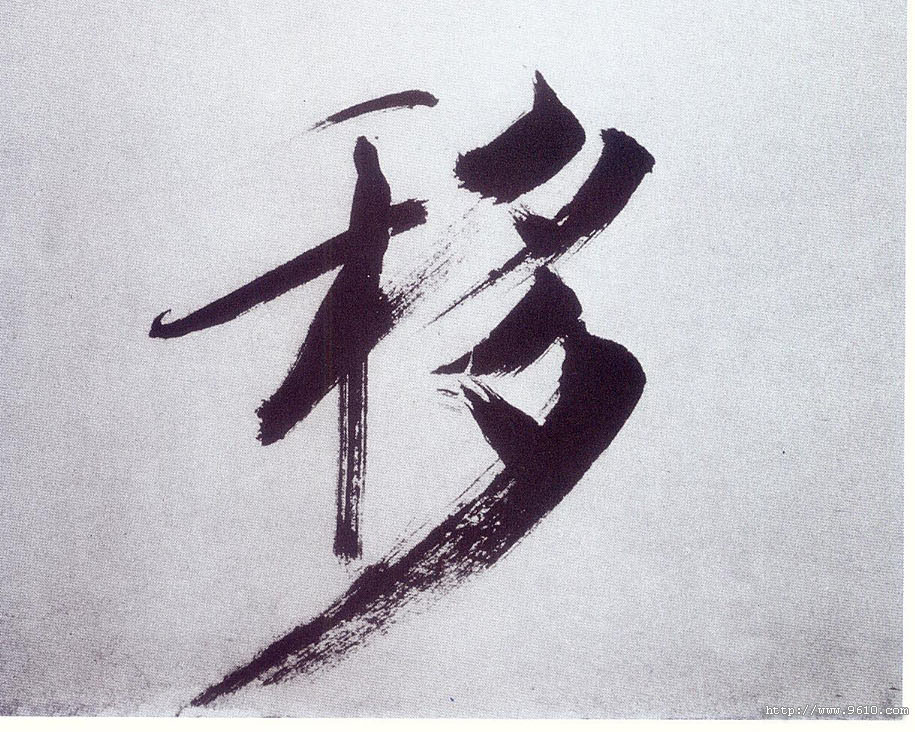 移
http://www.9610.com